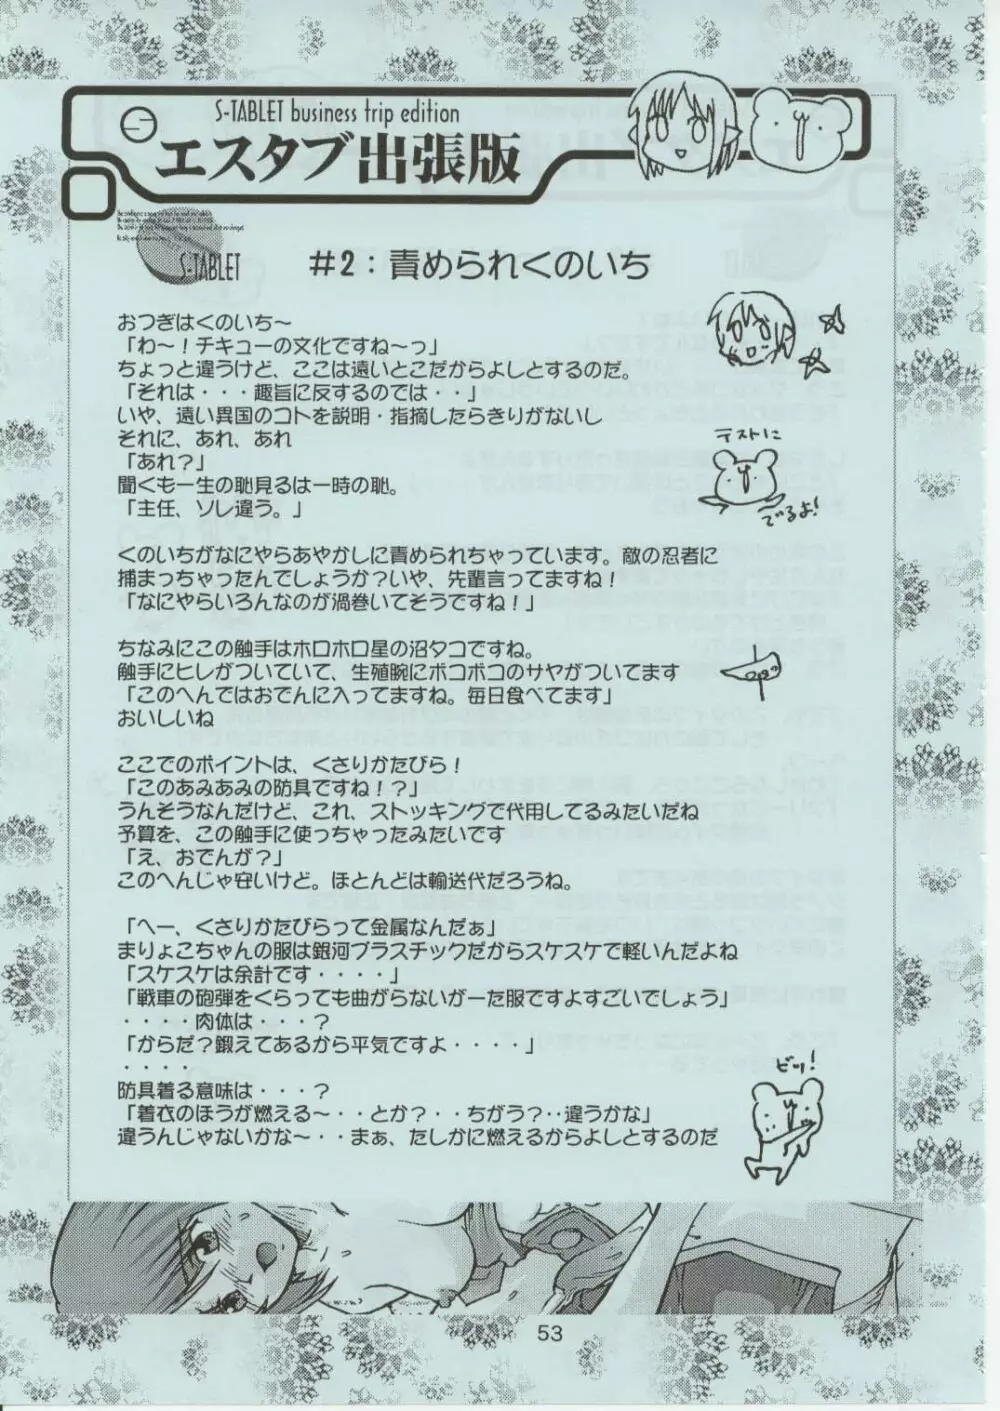 S-TABLET business trip edition
エスタブ出張版
S-TABLET
#2：責められくのいち
おつぎはくのいち～
「わ～！チキューの文化ですね～っ」
ちょっと違うけど、ここは遠いとこだからよしとするのだ。
「それは・・・趣旨に反するのでは・・」
いや、遠い異国のコトを説明・指摘したらきりがないし
それに、あれ、あれ
「あれ？」
聞くも一生の恥見るは一時の恥。
「主任、ソレ違う。」
くのいちがなにやらあやかしに責められちゃっています。敵の忍者に
捕まっちゃったんでしょうか？いや、先輩言ってますね！
「なにやらいろんなのが渦巻いてそうですね！」
ちなみにこの触手はホロホロ星の沼タコですね。
触手にヒレがついていて、生殖腕にボコボコのサヤがついてます
「このへんではおでんに入ってますね。毎日食べてます」
おいしいね
ここでのポイントは、くさりかたびら！
「このあみあみの防具ですね！？」
うんそうなんだけど、これ、ストッキングで代用してるみたいだね
予算を、この触手に使っちゃったみたいです
「え、おでんが？」
このへんじゃ安いけど。ほとんどは輸送代だろうね。
「へー、くさりかたびらって金属なんだぁ」
まりょこちゃんの服は銀河プラスチックだからスケスケで軽いんだよね
「スケスケは余計です・・・・」
「戦車の砲弾をくらっても曲がらないがーた服ですよすごいでしょう」
・・・・肉体は・・・？
「からだ？鍛えてあるから平気ですよ・・・・」
・・・・
防具着る意味は・・・？
「着衣のほうが燃える～・・とか？・・ちがう？・・違うかな」
違うんじゃないかな～・・まぁ、たしかに燃えるからよしとするのだ
テストに
でるよ！
ビッ！
53